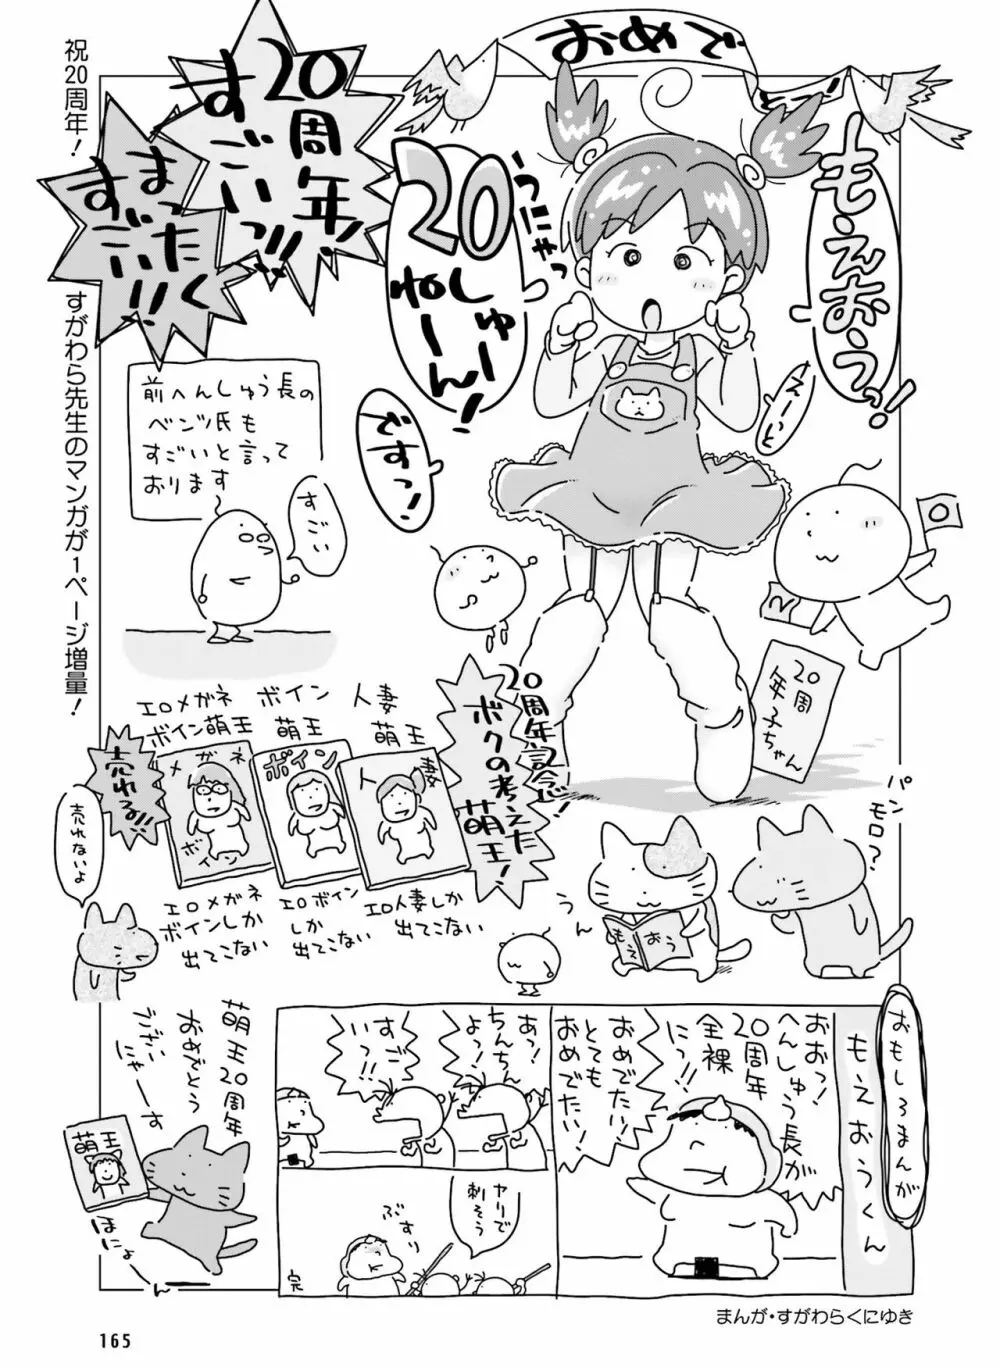 祝20周年！　すがわら先生のマンガが1ページ増量！
おめで
とっ！
もえおうっ！
えーいと
うにゃっ
20
しゅー
ねーん！
ですっ！
20周年！
すごいっ!!
まったく
すごい!!
前へんしゅう長の
ベンツ氏も
すごいと言って
おります
すごい
20周
年子ちゃん
20周年記念！
ボクの考えた
萌王！
人妻
萌王
ボイン
萌王
エロメガネ
ボイン萌王
人妻
ボイン
メガネ
ボイン
売れる!!
売れないよ
エロ人妻しか
出てこない
エロボイン
しか
出てこない
エロメガネ
ボインしか
出てこない
パン
モロ？
うん
もえ
おう
萌王20周年
おめでとう
ござい
にゃーす
萌王
ほにょ
ん
おもしろまんが
もえおうくん
おおっ！
へんしゅう長が
20周年
全裸
にっ!!
おめでたい！
とても
おめでたい！
あっ！
ちんちん
よっ！
すご
いっ!!
ヤリで
刺そう
ぶすり
完
まんが・すがわらくにゆき
165